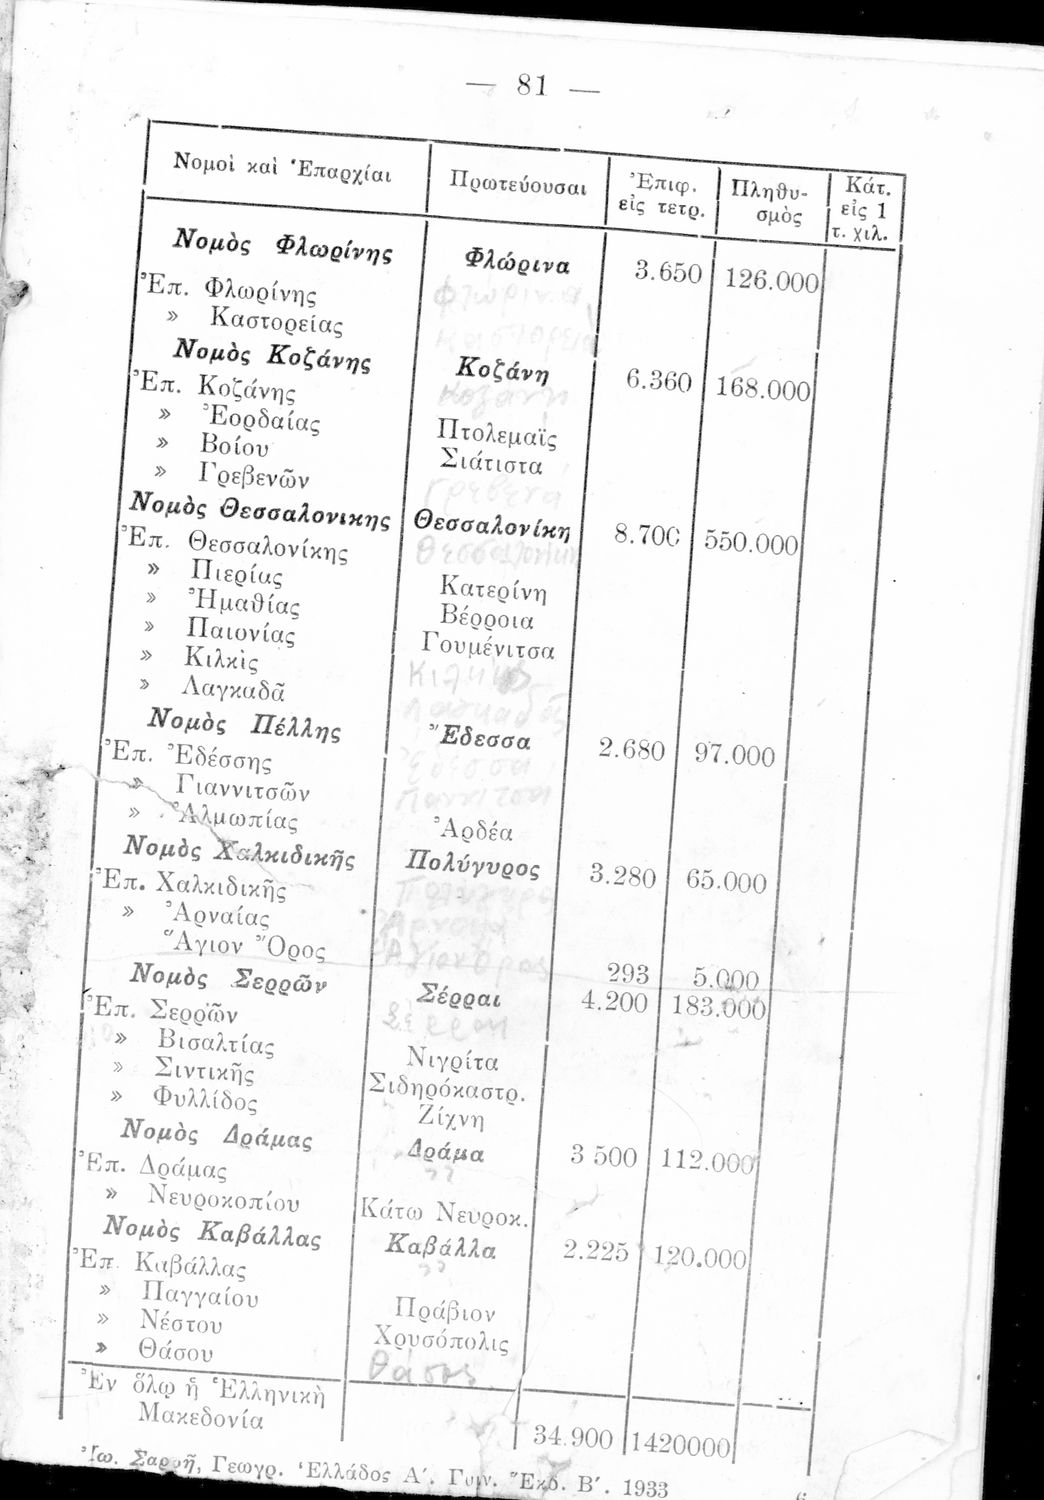 — 81 —
Νομοὶ καὶ Ἐπαρχίαι Πρωτεύουσαι Ἐπιφ. εἰς τετρ. Πληθυ-σμὸς Κάτ. εἰς 1 τ. χιλ.
Νομὸς Φλωρίνης Φλώρινα 3.650 126.000
Ἐπ. Φλωρίνης Φλώρινα
» Καστορείας Καστορεία
Νομὸς Κοζάνης Κοζάνη 6.360 168.000
Ἐπ. Κοζάνης Κοζάνη
» Ἐορδαίας Πτολεμαΐς
» Βοίου Σιάτιστα
» Γρεβενῶν Γρεβενα
Νομὸς Θεσσαλονικης Θεσσαλονίκη 8.700 550.000
Ἐπ. Θεσσαλονίκης Θεσσαλονικη
» Πιερίας Κατερίνη
» Ἠμαθίας Βέρροια
» Παιονίας Γουμένιτσα
» Κιλκὶς Κιλκις
» Λαγκαδᾶ Λαγκαδᾶς
Νομὸς Πέλλης Ἔδεσσα 2.680 97.000
Ἐπ. Ἐδέσσης Ἔδεσσα
» Γιαννιτσῶν Γιαννιτσα
» Ἀλμωπίας Ἀρδέα
Νομὸς Χαλκιδικῆς Πολύγυρος 3.280 65.000
Ἐπ. Χαλκιδικῆς Πολυγυρος
» Ἀρναίας Ἀρναια
Ἅγιον Ὄρος Ἁγιονορος 293 5.000
Νομὸς Σερρῶν Σέρραι 4.200 183.000
Ἐπ. Σερρῶν Σερραι
» Βισαλτίας Νιγρίτα
» Σιντικῆς Σιδηρόκαστρ.
» Φυλλίδος Ζίχνη
Νομὸς Δράμας Δράμα 3 500 112.000
Ἐπ. Δράμας »
» Νευροκοπίου Κάτω Νευροκ.
Νομὸς Καβάλλας Καβάλλα 2.225 120.000
Ἐπ. Καβάλλας »
» Παγγαίου Πράβιον
» Νέστου Χρυσόπολις
» Θάσου Θάσος
Ἐν ὅλῳ ἡ Ἑλληνικὴ
Μακεδονία 34.900 1420000
Ἰω. Σαρρῆ, Γεωγρ. Ἑλλάδος Α΄. Γυμν. Ἔκδ. Β΄. 1933 6